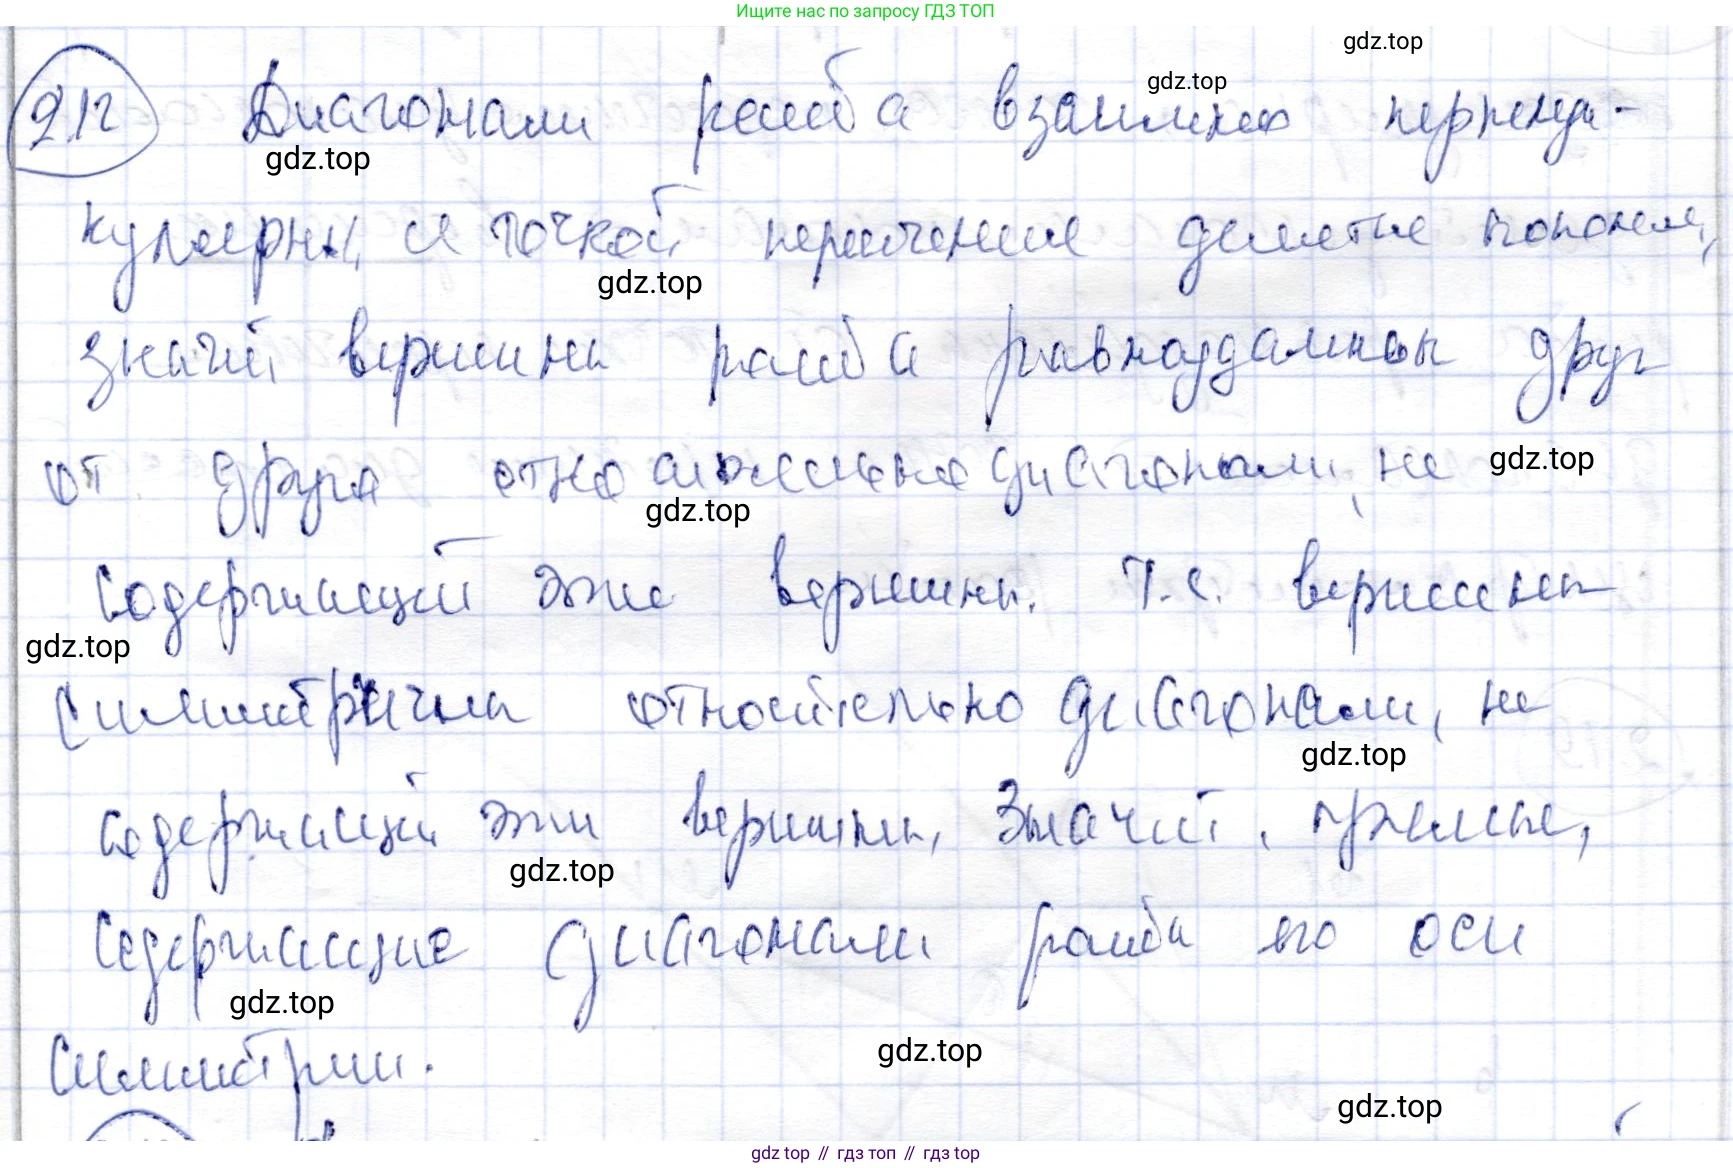 Ищите нас по запросу ГДЗ ТОП
gdz.top
gdz.top
9.12 Диагонали ромба взаимно перпенди-
gdz.top
кулярны, и точкой пересечения делятся пополам,
gdz.top
значит, вершины ромба равноудалены друг
от друга относительно диагонали, не
gdz.top
gdz.top
содержащей эти вершины. Т.е. вершины
gdz.top
симметричны относительно диагонали, не
gdz.top
содержащей эти вершины, Значит, прямые,
gdz.top
содержащие диагонали ромба его оси
gdz.top
симметрии.
gdz.top
gdz.top
gdz top // гдз топ // гдз top